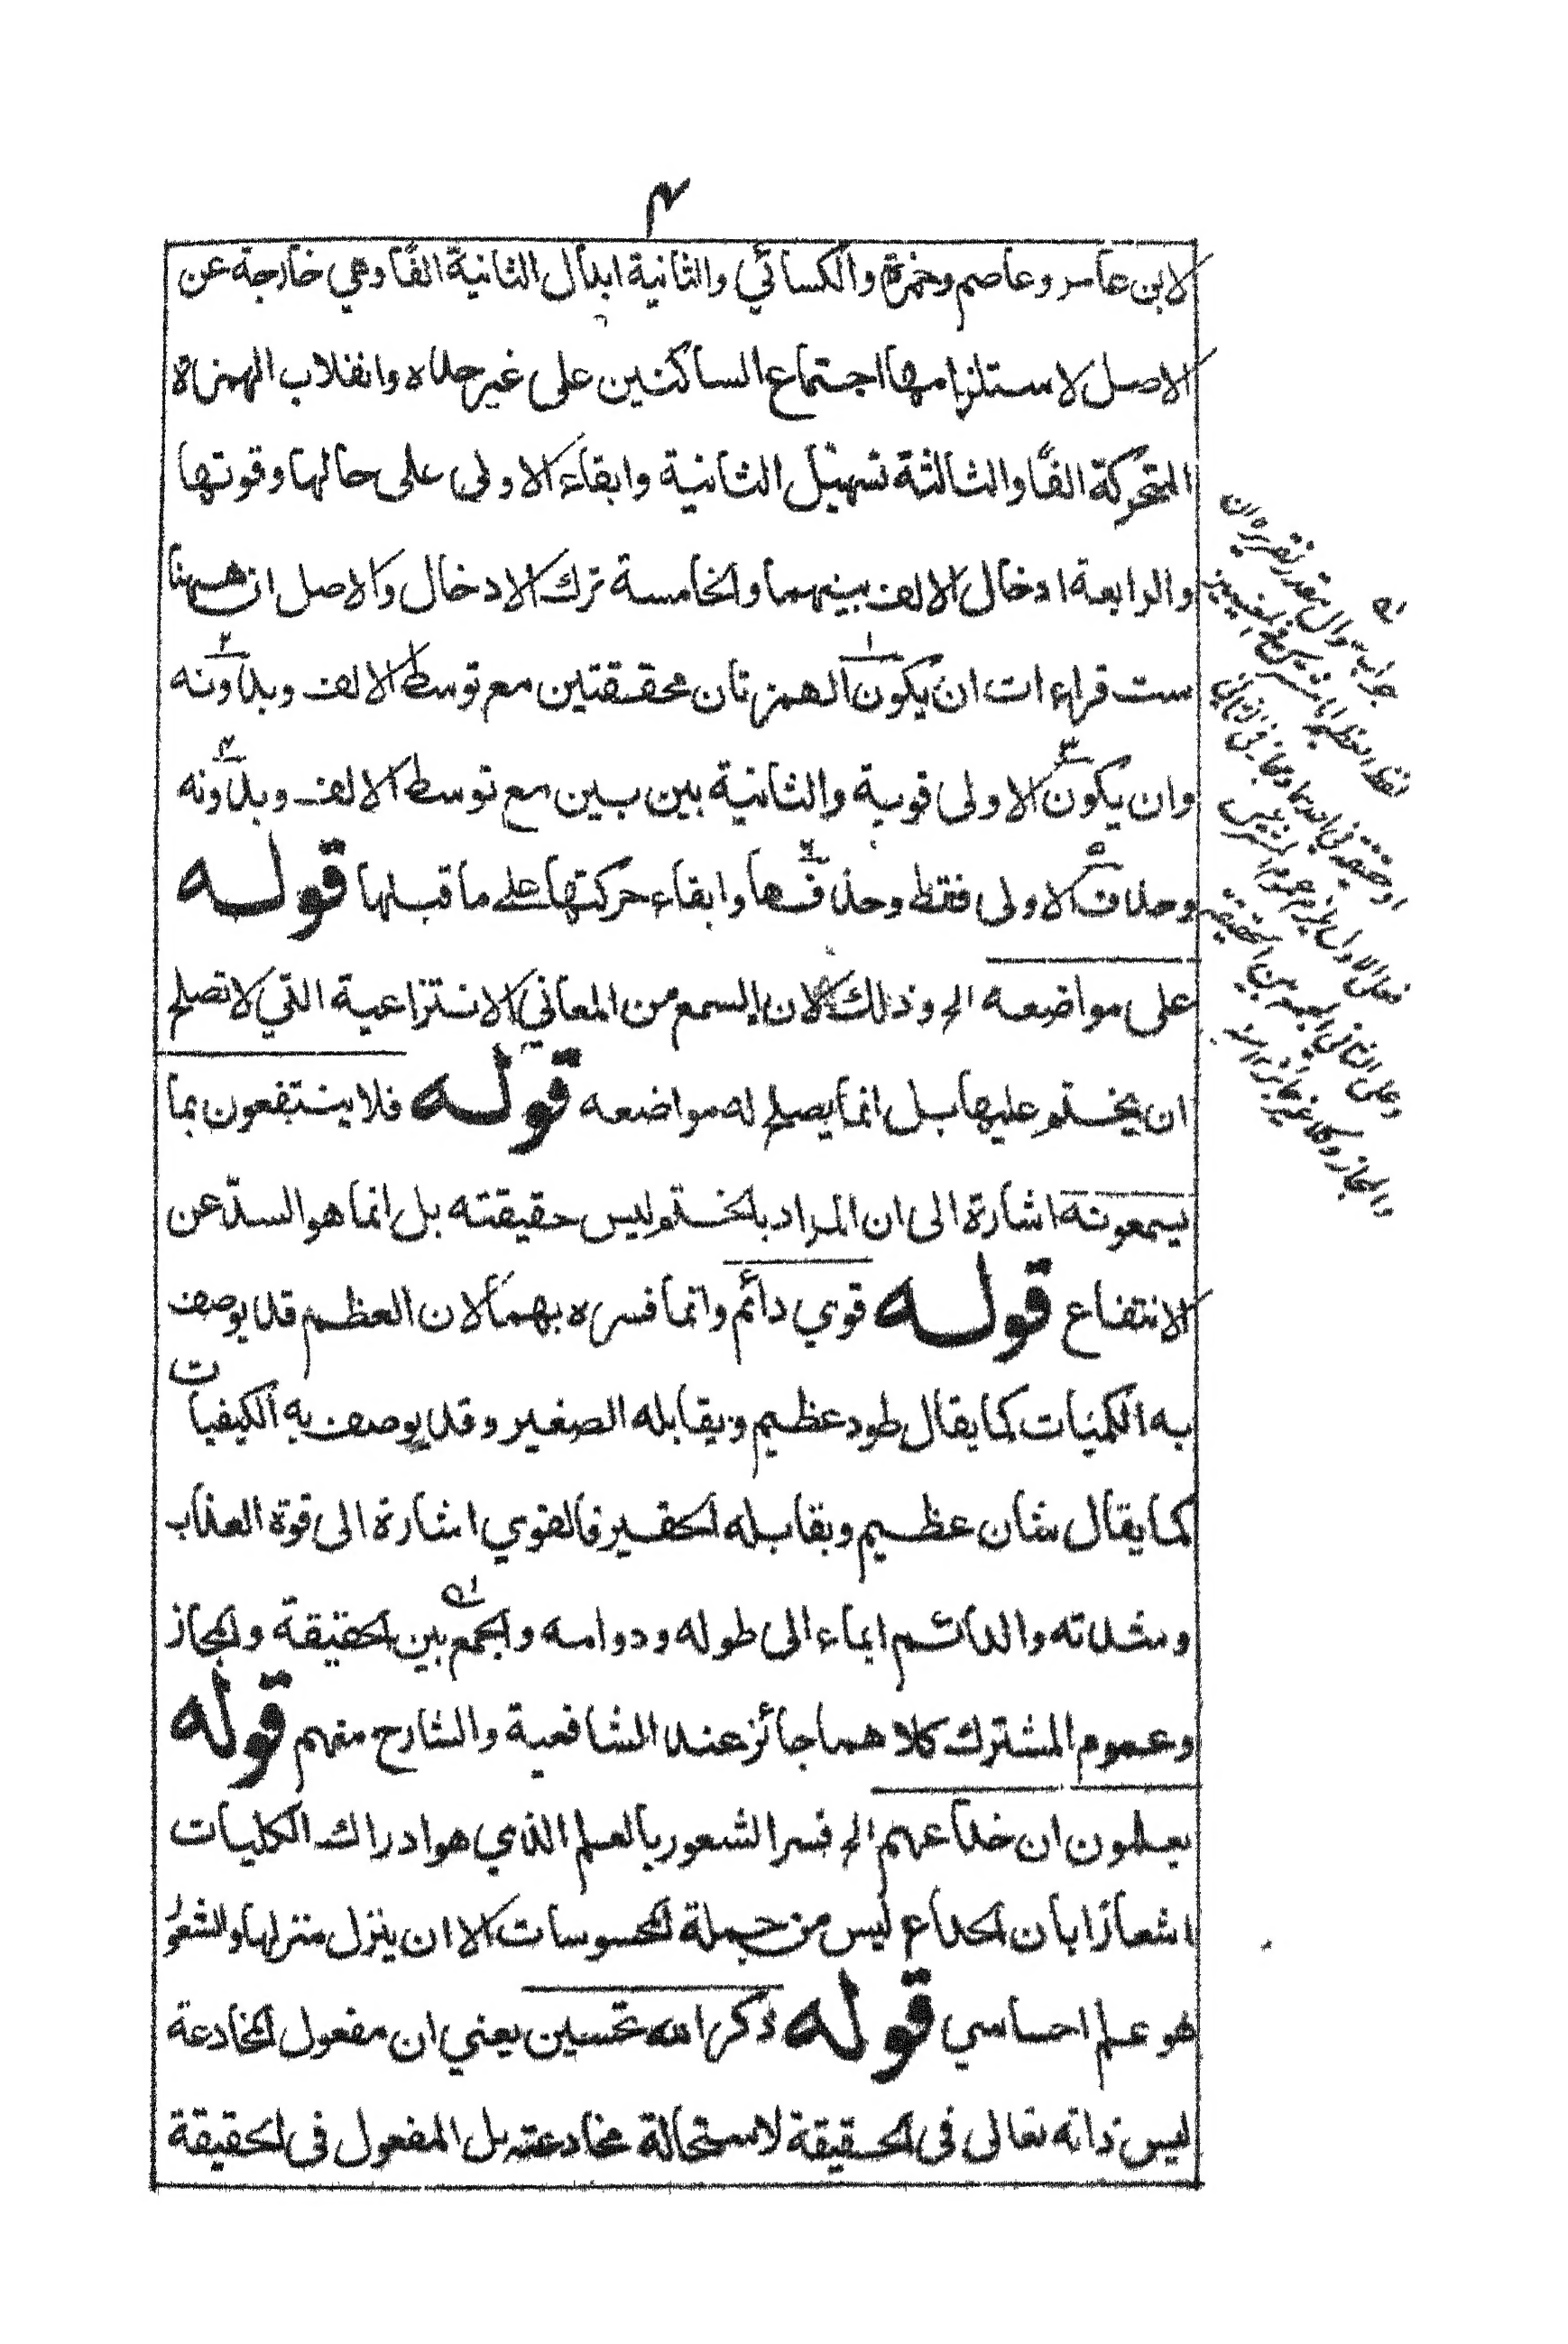 ٤
لابن عامر وعاصم وحمزة والكسائي والثانية ابدال الثانية الفًا وهي خارجة عن
الاصل لاستلزامها اجتماع الساكنين على غير حده وانقلاب الهمزة
المتحركة الفًا والثالثة تسهيل الثانية وابقاء الاولى على حالها وقوتها
والرابعة ادخال الالف بينهما والخامسة ترك الادخال والاصل ان ههنا
ست قراءات ان يكون ١ الهمزتان محققتين مع توسط الالف وبدونه ٢
وان يكون ٣ الاولى قوية والثانية بين بين مع توسط الالف وبدونه ٤
وحذف ٥ الاولى فقط وحذفها ٦ وابقاء حركتها على ما قبلها قوله
على مواضعه الخ وذلك لان السمع من المعاني الانتزاعية التي لا تصلح
ان يختم عليها بل انما يصلح له مواضعه قوله فلا ينتفعون بما
يسمعونه اشارة الى ان المراد بالختم ليس حقيقته بل انما هو السدّ عن
الانتفاع قوله قوي دائم وانما فسره بهما لان العظم قد يوصف
به الكميات كما يقال طود عظيم ويقابله الصغير وقد يوصف به الكيفيات
كما يقال شان عظيم ويقابله الحقير فالقوي اشارة الى قوة العذاب
وشدته والدائم ايماء الى طوله ودوامه والجمع بين الحقيقة والمجاز
وعموم المشترك كلاهما جائز عند الشافعية والشارح منهم قوله
يعلمون ان خداعهم الخ فسر الشعور بالعلم الذي هو ادراك الكليات
اشعارًا بان الخداع ليس من جملة المحسوسات الا ان ينزل منزلها والشعور
هو علم احساسي قوله ذكر الله تحسين يعني ان مفعول المخادعة
ليس ذاته تعالى في الحقيقة لاستحالة مخادعته بل المفعول في الحقيقة
جواب سوال مقدر تقريره ان